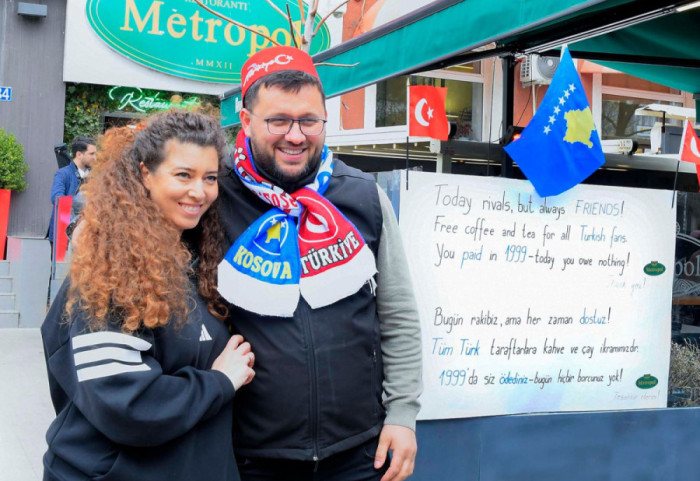 RISTORANTI
Metropol
MMXII
Restaurant
24
Türkiye
KOSOVA
TÜRKİYE
Today rivals, but always FRIENDS!
Free coffee and tea for all Turkish fans.
You paid in 1999-today you owe nothing!
Thank you!
Metropol
Bugün rakibiz, ama her zaman dostuz!
Tüm Türk taraftarlara kahve ve çay ikramımızdır.
1999'da siz ödediniz-bugün hiçbir borcunuz yok!
Metropol